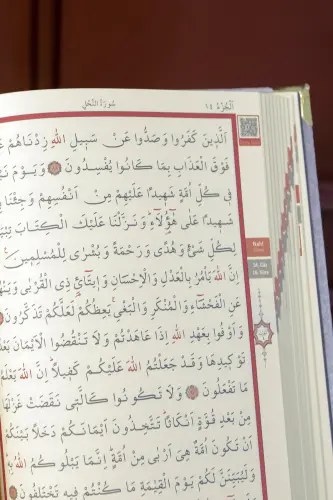 سُورَةُ النَّحْلِ
اَلْجُزْءُ ١٤
اَلَّذٖينَ كَفَرُوا وَصَدُّوا عَنْ سَبٖيلِ اللّٰهِ زِدْنَاهُمْ
فَوْقَ الْعَذَابِ بِمَا كَانُوا يُفْسِدُونَ وَيَوْمَ
فٖى كُلِّ اُمَّةٍ شَهٖيدًا عَلَيْهِمْ مِنْ اَنْفُسِهِمْ وَجِئْنَا
شَهٖيدًا عَلٰى هٰٓؤُ۬لَٓاءِ وَنَزَّلْنَا عَلَيْكَ الْكِتَابَ
لِكُلِّ شَىْءٍ وَهُدًى وَرَحْمَةً وَبُشْرٰى لِلْمُسْلِمٖينَ
اِنَّ اللّٰهَ يَأْمُرُ بِالْعَدْلِ وَالْاِحْسَانِ وَاٖيتَٓائِ ذِى الْقُرْبٰى
عَنِ الْفَحْشَٓاءِ وَالْمُنْكَرِ وَالْبَغْىِ يَعِظُكُمْ لَعَلَّكُمْ تَذَكَّرُونَ
وَاَوْفُوا بِعَهْدِ اللّٰهِ اِذَا عَاهَدْتُمْ وَلَا تَنْقُضُوا الْاَيْمَانَ
تَوْكٖيدِهَا وَقَدْ جَعَلْتُمُ اللّٰهَ عَلَيْكُمْ كَفٖيلًا اِنَّ اللّٰهَ يَعْلَمُ
مَا تَفْعَلُونَ وَلَا تَكُونُوا كَالَّتٖى نَقَضَتْ غَزْلَهَا
مِنْ بَعْدِ قُوَّةٍ اَنْكَاثًا تَتَّخِذُونَ اَيْمَانَكُمْ دَخَلًا بَيْنَكُمْ
اَنْ تَكُونَ اُمَّةٌ هِىَ اَرْبٰى مِنْ اُمَّةٍ اِنَّمَا يَبْلُوكُمُ اللّٰهُ
وَلَيُبَيِّنَنَّ لَكُمْ يَوْمَ الْقِيٰمَةِ مَا كُنْتُمْ فٖيهِ تَخْتَلِفُونَ
Nahl
14. Cüz
16. Sûre